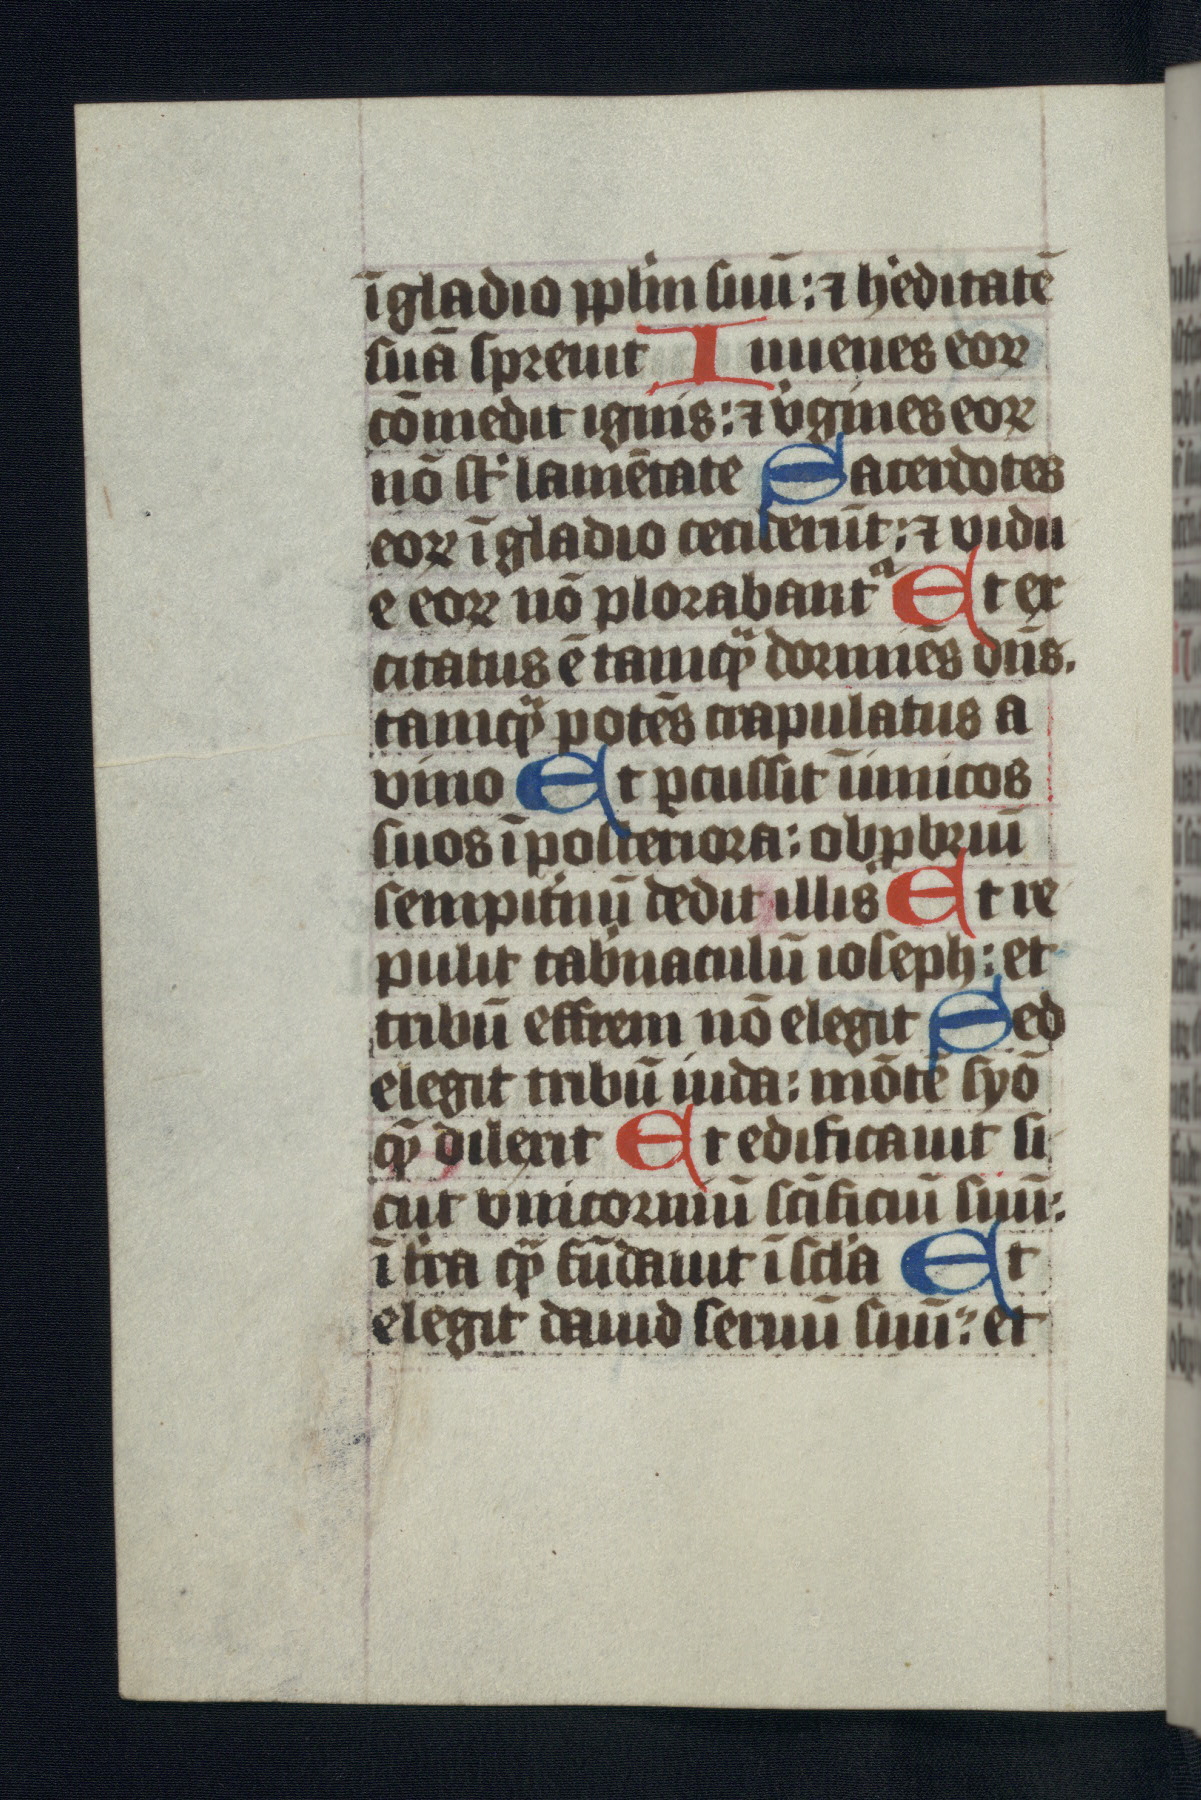 ī gladio pplm̄ suū : ⁊ h'editatē
suā spreuit Iuuenes eoꝝ
cōmedit ignis : ⁊ v̓gines eoꝝ
nō st̄ lamētate Sacerdotes
eoꝝ ī gladio ceciderūt : ⁊ vidu
e eoꝝ nō plorabantᷓ Et ex
citatus ē tamqᷓ dormiēs dn̄s .
tamqᷓ potēs crapulatus a
vino Et ꝑcussit īimicos
suos ī posteriora : obꝓbriū
sempit̓nū dedit illis Et re
pulit tab̓naculū ioseph : et
tribū effrem nō elegit Sed
elegit tribū iuda : mōtē syō
qᷓ dilexit Et edificauit si
cut vnicorniū sc̄ificiū suū :
ī t̓ra qᷓ fūdauit ī scl̓a Et
elegit dauid seruū suū : et